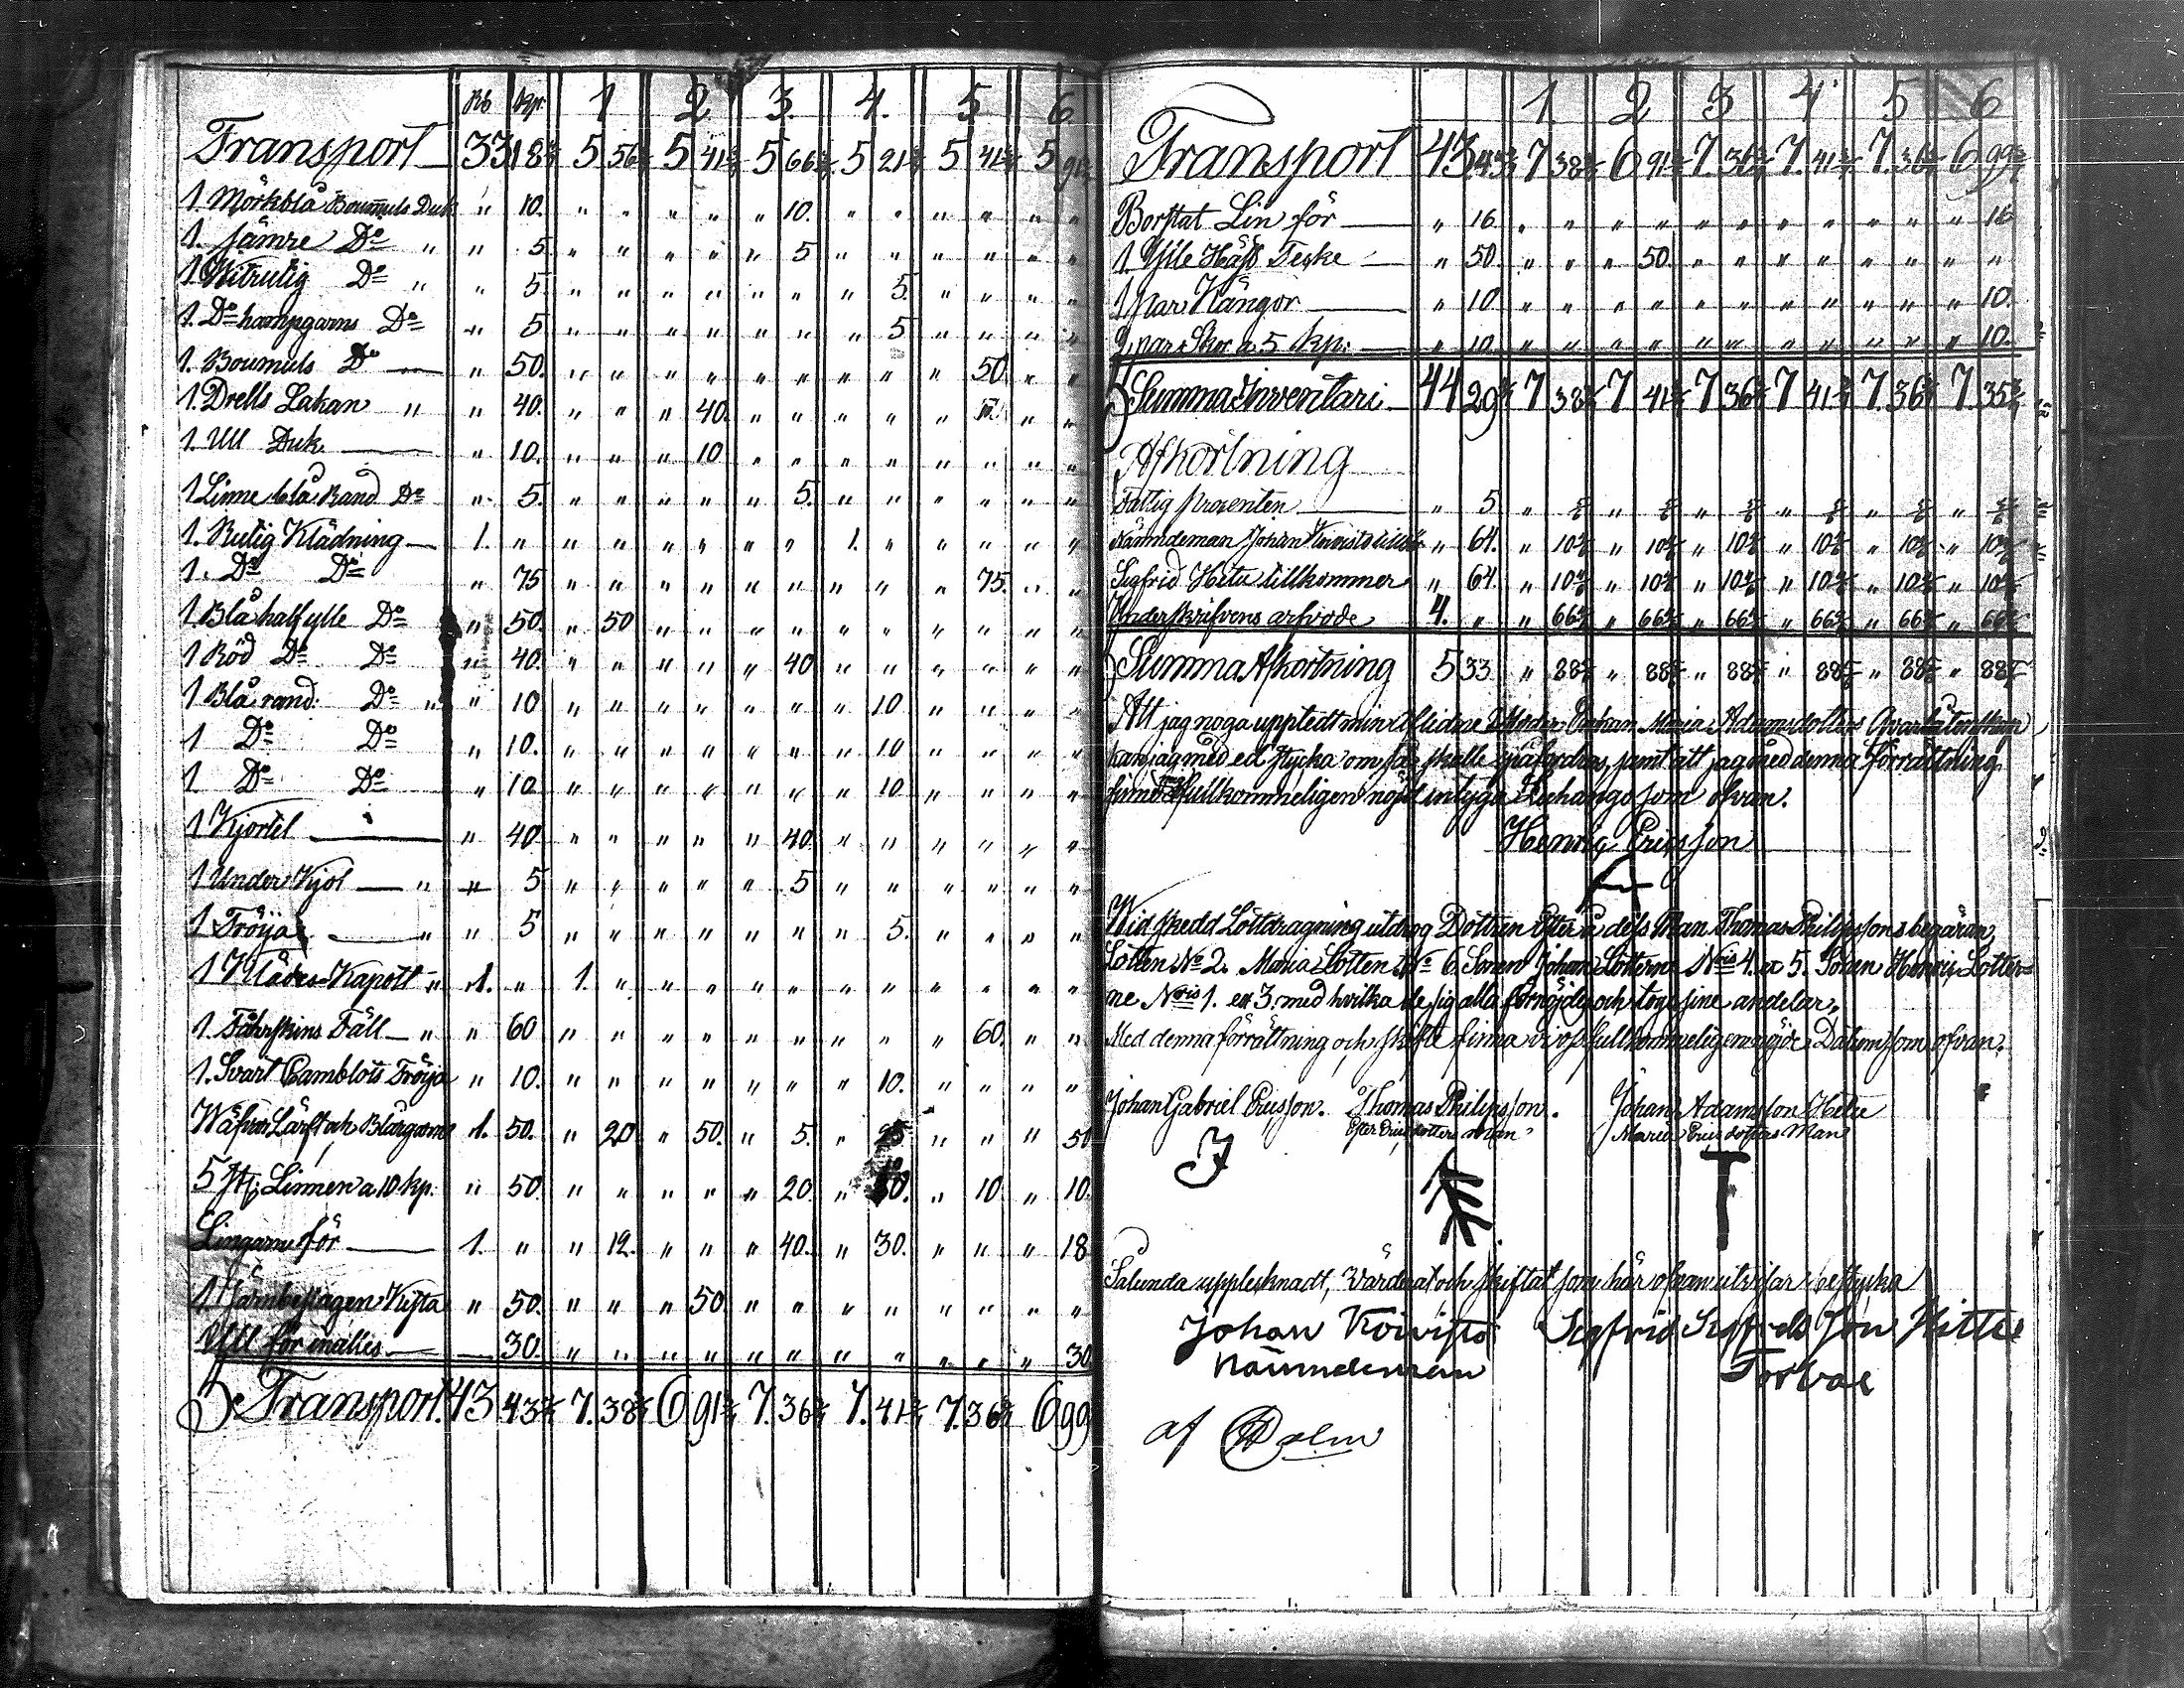 Rb Kp. 1 2 3. 4. 5 6
Transport 33 18 5 56 5 41 5 66 5 21 5 41 5 91
1 Mörkblå Boumuls Duk " 10. " " " " " 10. " " " " " "
1. sämre Do " " 5. " " " " " 5 " " " " " "
1 Hvitrutig Do " " 5. " " " " " " " 5. " " " "
1. Do hampgarns Do " 5 " " " " " " " 5 " " " "
1. Boumuls Do " 50. " " " " " " " " " 50 " "
1. Drells Lakan " " 40. " " " 40. " " " " " " "
1. Ull Duk " 10. " " " 10 " " " " " " " "
1 Linne blå Rand Do " 5. " " " " " 5. " " " " " "
1. Rutig Klädning 1. " " " " " " " 1. " " " " "
1. Do Do " 75 " " " " " " " " " 75. " "
1 Blå halfylle Do " 50. " 50 " " " " " " " " " "
1 Röd Do Do " 40. " " " " " 40 " " " " " "
1 Blå rand. Do " " 10 " " " " " " " 10 " " " "
1 Do Do " 10. " " " " " " " 10 " " " "
1 Do Do " 10. " " " " " " " 10 " " " "
1 Kjortel " 40. " " " " " 40. " " " " " "
1 Under Kjol " " 5 " " " " " 5 " " " " " "
1 Tröija " " 5 " " " " " " " 5. " " " "
1 Klädes Kapott " 1. " 1. " " " " " " " " " " "
1. Fåhrskins Fäll " " 60 " " " " " " " " " 60. " "
1. Svart Camblots Tröija " 10. " " " " " " " 10. " " " "
Wäfvar Lärft och Blårgarns 1. 50. " 20 " 50. " 5. " 25 " " " 50
5 st: Linnen a 10 kp. " 50. " " " " " 20. " 10. " 10 " 10.
Lingarn för 1. " " 12. " " " 40. " 30. " " " 18
1. Järnbeslagen Kista " 50. " " " 50 " " " " " " " "
Ull för inalles 30. " " " " " " " " " " " 30
Transport. 43 43 7. 38 6 91 7. 36 7. 41 7. 36 6 99
1. 2 3 4 5 6
Transport 43 43 7 38 6 91 7. 36 7. 41 7. 36 6 99
Borstat Lin för " 16 " " " " " " " " " " " 16
1. Yile Häst Teske " 50. " " " 50. " " " " " " " "
1 par Kängor " 10. " " " " " " " " " " " 10.
2 par Skor a 5 kp: " 10. " " " " " " " " " " " 10.
Summa Inventari 44 29 7 38 7 41 7 36 7 41 7. 36 7. 35
Afkortning
Fattig prosenten " 5 " 5/6 " 5/6 " 5/6 " 5/6 " 5/6 " 5/6
Nämndeman Johan Koivisto " 64. " 10 4/6 " 10 4/6 " 10 4/6 " 10 4/6 " 10 4/6 " 10 4/6
Sigfrid Hitu tillkommer " 64. " 10 4/6 " 10 4/6 " 10 4/6 " 10 4/6 " 10 4/6 " 10 4/6
Underskrifvens arfvode 4. " " 66 4/6 " 66 4/6 " 66 4/6 " 66 4/6 " 66 4/6 " 66 4/6
Summa Afkortning 5 33 " 88 5/6 " 88 5/6 " 88 5/6 " 88 5/6 " 88 5/6 " 88 5/6
Att jag noga upptedt min aflidne Moder Enkan Maria Adamsdotters Qvarlåtenskap
kan jag med ed styrka om så skulle påfordras, samt att jag med denna förrättning
finner fullkommeligen nöjd intygar som ofvan.
Henric Ericsson
Wid skedd Lottdragning utdrog Dottren Thomas Philipssons begäran
Lotten No 2. Maria Lotten No 6. Sonen Johan Lotterne Nris 4. et 5. Sonen Henric Lotter=
ne Nris 1. et 3. med hvilka de sig alla förnöjde och togo sine andelar.
Med denna förrättning och skifte finna vi oss fullkommeligen nöjde Datum som ofvan.
Johan Gabriel Ericsson. Thomas Philipsson. Johan Adamsson Hitu
Ericsdotters man Maria Ericsdotters Man
Sålunda uppteknadt, värderat och skiftat som här ofvan utvisar betyga
Johan Koivisto Sigfrid Sigfrids Son Hittu
Nämndeman Torvoe
af Holm